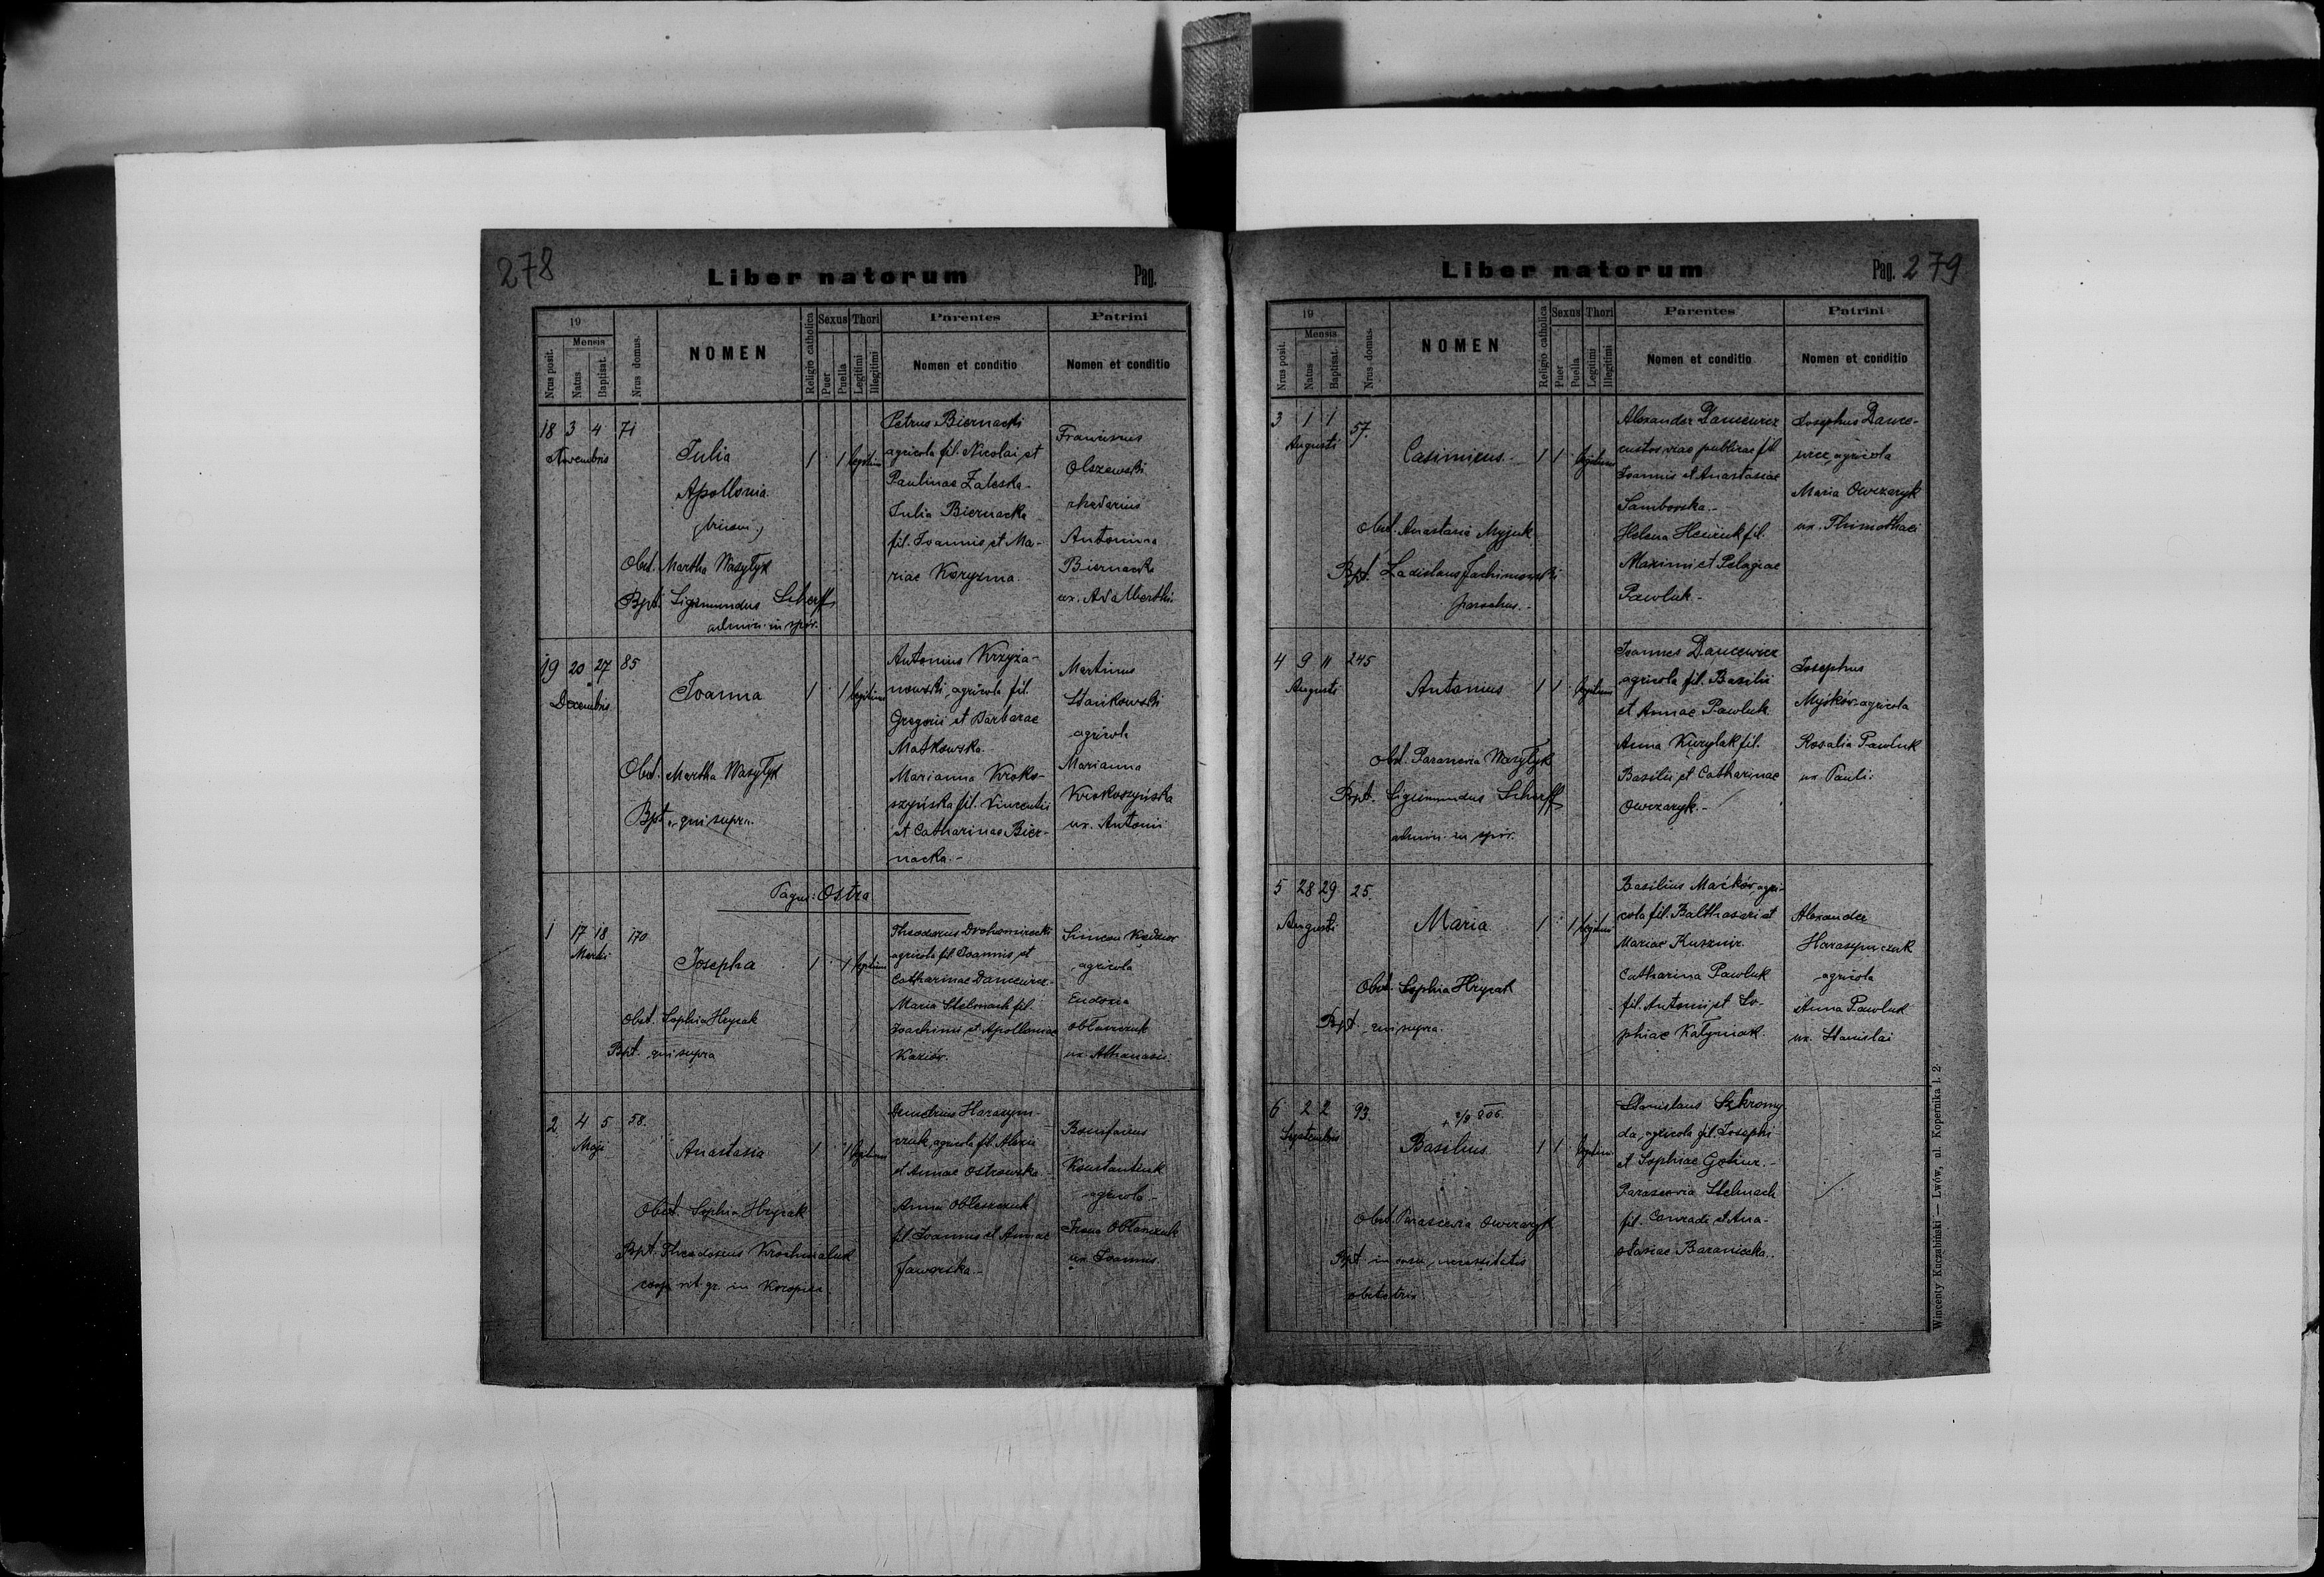 278
Liber natorum
Pag.
19
Mensis
Nrus posit.
Natus
Baptisat.
Nrus domus.
NOMEN
Religio catholica
Sexus
Puer
Puella
Thori
Legitimi
Illegitimi
Parentes
Nomen et conditio
Patrini
Nomen et conditio
18 3 4 71
Novembris
Julia
Apollonia
(binom.)
1 1 legitim
Obst. Martha Wasyłyk
Bpt. Sigismundus Scherff
admin. in spir.
Petrus Biernacki
agricola fil. Nicolai et
Paulinae Zaleska -
Julia Biernacka
fil. Joannis et Ma-
riae Koryzma
Franciscus
Olszewski
rhedarius
Antonina
Biernacka
ux. Adalberthi
19 20 27 85.
Decembris
Joanna
1 1 legitim
Obst. Martha Wasyłyk
Bpt. qui supra.
Antonius Krzyża-
nowski, agricola fil.
Gregorii et Barbarae
Matkowska -
Marianna Kroko-
szyńska fil. Vincentii
et Catharinae Bier-
nacka. -
Martinus
Stankowski
agricola
Marianna
Krokoszyńska
ux. Antonii
Pagus: Ostra
1 17 18 170
Martii
Josepha
1 1 legitim
Obst. Sophia Hrycak
Bpt. qui supra
Theodorus Drohomirecki
agricola fil. Joannis et
Catharinae Dancewicz -
Maria Stelmach fil.
Joachimi et Apolloniae
Simeon
agricola
Eudoxia
ux. Athanasii
2. 4 5 58.
Maji
Anastasia
1 1 legitim
Obst. Sophia Hrycak
Bpt. Theodosius Krochmaluk
coop. rit. gr. in Koropiec
Demetrius Harasym-
czuk, agricola fil. Alexii
et Annae Ostrowska
Anna
fil. Joannis et Annae
Jaworska -
Bonifacius
Konstantiuk
agricola -
ux. Joannis.
Liber natorum
Pag. 279
19
Mensis
Nrus posit.
Natus
Baptisat.
Nrus domus.
NOMEN
Religio catholica
Sexus
Puer
Puella
Thori
Legitimi
Illegitimi
Parentes
Nomen et conditio
Patrini
Nomen et conditio
3 1 1 57.
Augusti
Casimirus
1 1 legitimi
Obst. Anastasia Myjuk
Bpt. Ladislaus Jachimowski
parochus. -
Alexander Dancewicz
custos viae publicae fil.
Joannis et Anastasiae
Samborska. -
Helena fil.
Maximi et Pelagiae
Pawluk -
Josephus Dance-
wicz, agricola
Maria Owczaryk
ux. Thimothaei
4 9 11 245
Augusti
Antonius
1 1 legitimi
Obst. Parascevia Wasyłyk
Bpt. Sigismundus Scherff
admin. in spir.
Joannes Dancewicz
agricola fil. Basilii
et Annae Pawluk
Anna Kurylak fil.
Basilii et Catharinae
Owczaryk. -
Josephus
Myśków agricola
Rosalia Pawluk
ux. Pauli.
5 28 29 25.
Augusti
Maria
1 1 legitimi
Obst. Sophia Hrycak
Bpt. qui supra
Basilius Maćków, agri-
cola fil. Balthasari et
Mariae Kusznir
Catharina Pawluk
fil. Antonii et So-
phiae Kałymak.
Alexander
Harasymczuk
agricola
Anna Pawluk
ux. Stanislai
6 2 2 93.
Septembris
Basilius
1 1 legitimi
Obst. Parascevia Owczaryk
Bpt. in casu necessitatis
obstetrix
Stanislaus Szkromy
da, agricola fil. Josephi
et Sophiae
Parascevia Stelmach
fil. Conradi et Ana-
stasiae Baraniecka.
Wincenty Kuczabiński — Lwów, ul. Kopernika l. 2.